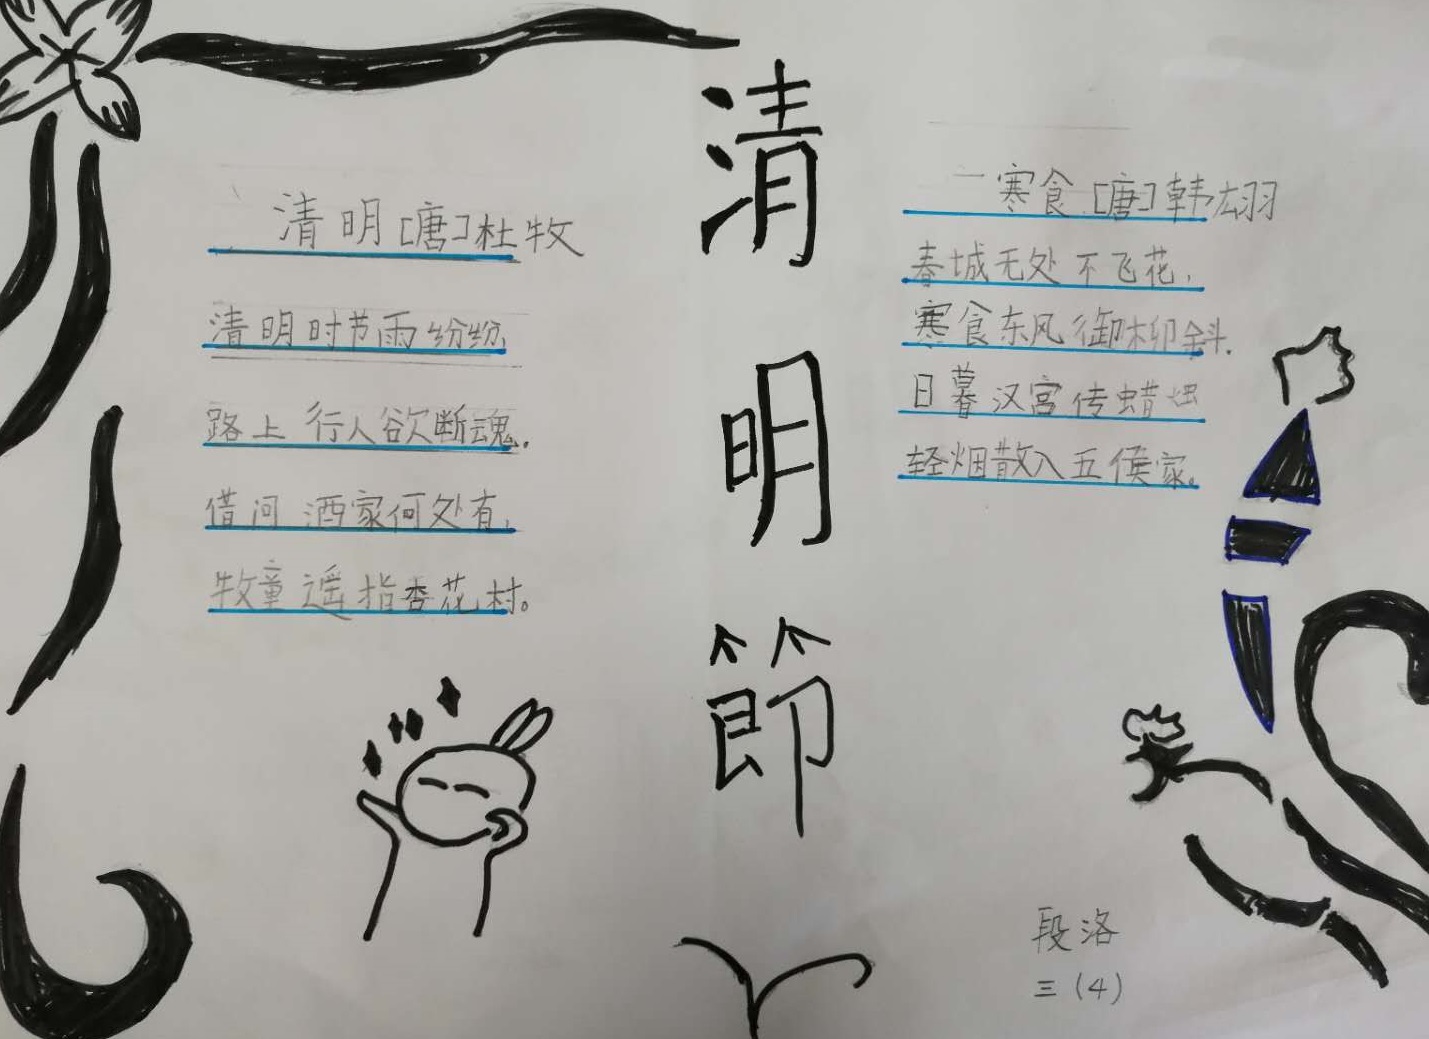 清明[唐]杜牧
清明时节雨纷纷,
路上行人欲断魂.
借问酒家何处有,
牧童遥指杏花村。
清明節
寒食[唐]韩翃
春城无处不飞花,
寒食东风御柳斜.
日暮汉宫传蜡烛
轻烟散入五侯家。
段洛
三(4)